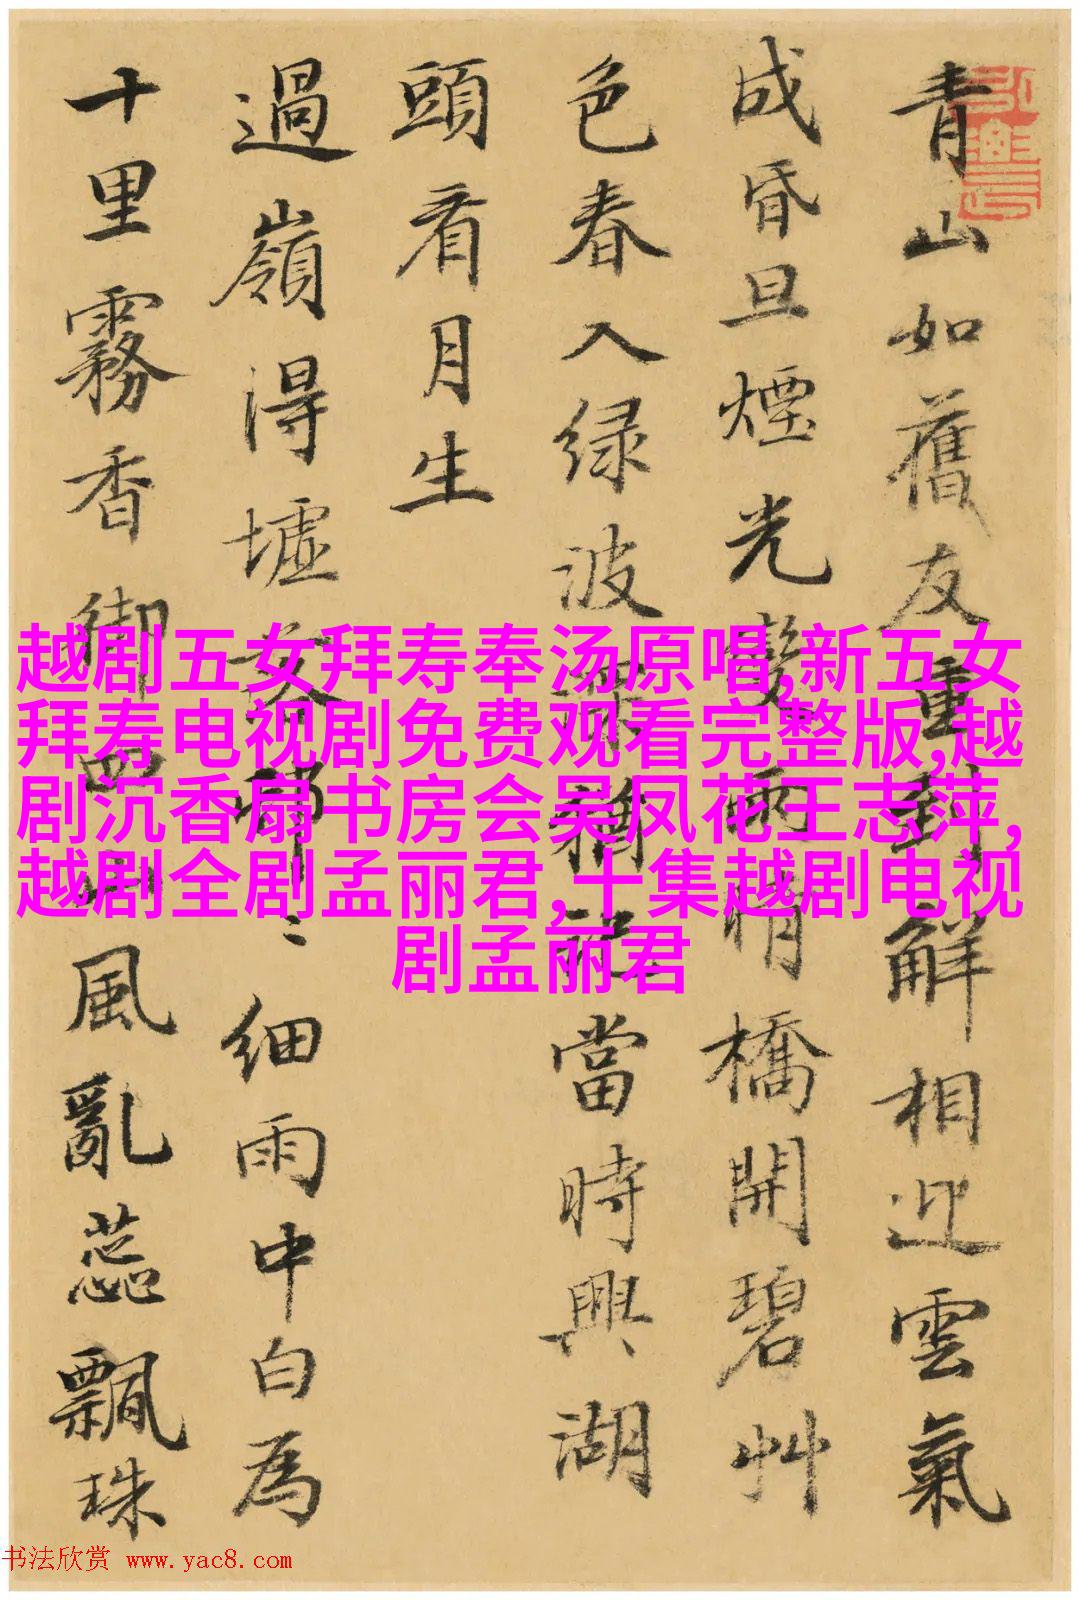 青山如舊友重對解相迎雲氣
成昏旦煙光變雨晴橋開碧艸
色春入绿波深猶記當時興湖
頭看月生
過嶺得墟細雨中白為
十里霧香御四山風亂蕊飄珠
越剧五女拜寿奉汤原唱,新五女
拜寿电视剧免费观看完整版,越
剧沉香扇书房会吴凤花王志萍,
越剧全剧孟丽君,十集越剧电视
剧孟丽君
书法欣赏 www.yac8.com